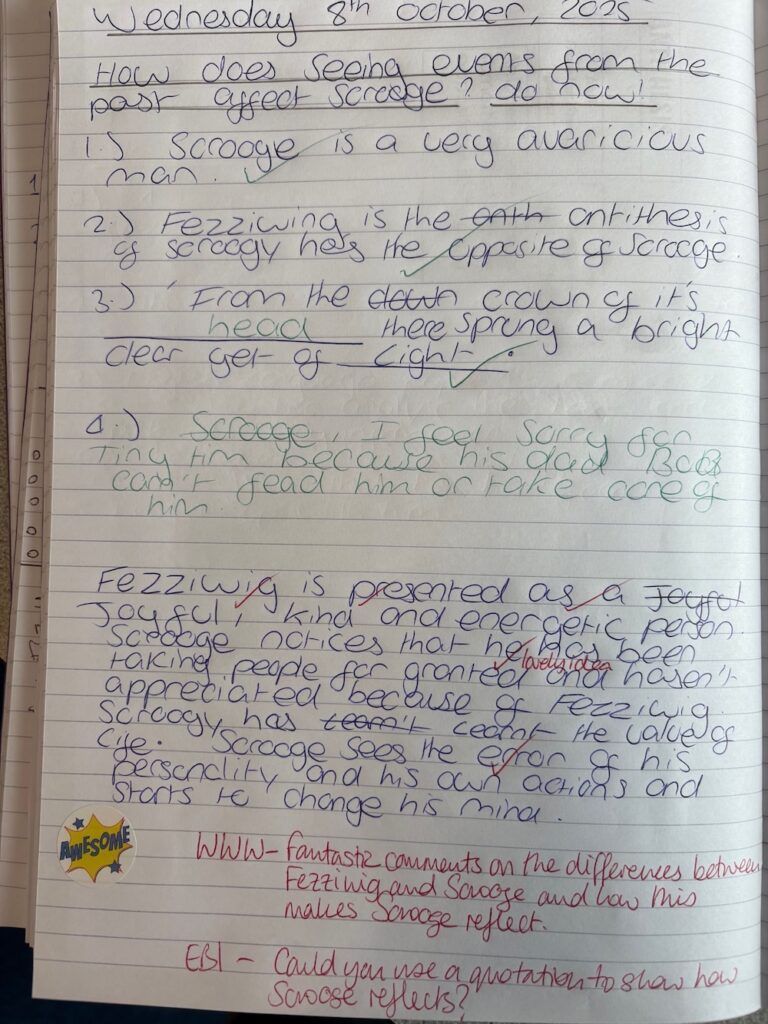 Wednesday 8th October, 2025
How does seeing events from the
past affect Scrooge? do now!
1.) Scrooge is a very avaricious
man.
2.) Fezziwing is the anth antithesis
of scroogy he's the opposite of Scrooge.
3.) 'From the down crown of it's
head there sprung a bright
clear get of light.
4.) Scrooge, I feel sorry for
Tiny tim because his dad BoB
can't fead him or take care of
him.
Fezziwig is presented as a Joyful
Joyful, kind and energetic person.
Scrooge notices that he has been
lovely idea
taking people for granted and hasn't
appreciated because of Fezziwig.
Scroogy has learn't learnt the value of
life. Scrooge sees the error of his
personality and his own actions and
starts to change his mind.
AWESOME
WWW - Fantastic comments on the differences between
Fezziwig and Scrooge and how this
makes Scrooge reflect.
EBI - Could you use a quotation to show how
Scrooge reflects?